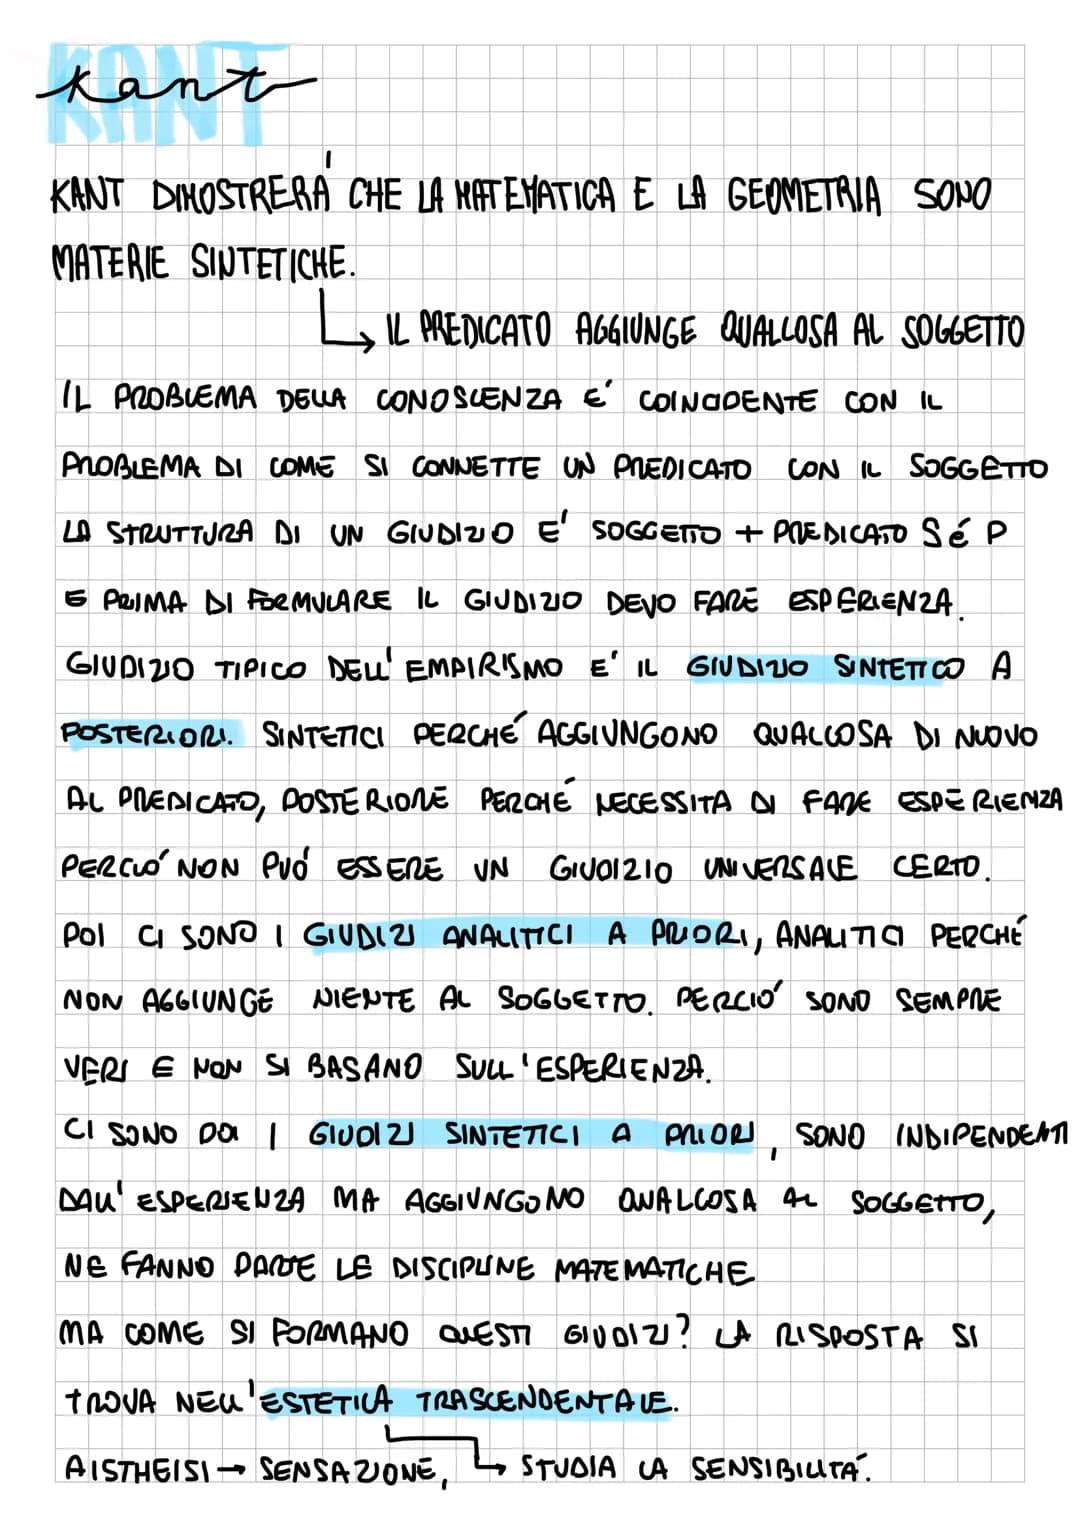 KANT
kant
KANT DIMOSTRERÀ CHE LA MATEMATICA E LA GEOMETRIA SONO
MATERIE SINTETICHE.
↳ IL PREDICATO AGGIUNGE QUALLOSA AL SOGGETTO
IL PROBLEMA DELLA CONOSCENZA E' COINCIDENTE CON IL
PROBLEMA DI COME SI CONNETTE UN PREDICATO CON IL SOGGETTO
LA STRUTTURA DI UN GIUDIZIO E' SOGGETTO + PREDICATO S é P
E PRIMA DI FORMULARE IL GIUDIZIO DEVO FARE ESPERIENZA.
GIUDIZIO TIPICO DELL'EMPIRISMO E' IL GIUDIZIO SINTETICO A
POSTERIORI. SINTETICI PERCHÉ AGGIUNGONO QUALCOSA DI NUOVO
AL PREDICATO, POSTERIORE PERCHÉ NECESSITA DI FARE ESPERIENZA
PERCIO' NON PUÓ ESSERE UN GIUDIZIO UNIVERSALE CERTO.
POI CI SONO I GIUDIZI ANALITICI A PRIORI, ANALITICI PERCHÉ
NON AGGIUNGE NIENTE AL SOGGETTO. PERCIO' SONO SEMPRE
VERI E NON SI BASANO SULL'ESPERIENZA.
CI SONO POI I GIUDIZI SINTETICI A PRIORI, SONO INDIPENDENTI
DALL'ESPERIENZA MA AGGIUNGONO QUALCOSA AL SOGGETTO,
NE FANNO PARTE LE DISCIPLINE MATEMATICHE
MA COME SI FORMANO QUESTI GIUDIZI? LA RISPOSTA SI
TROVA NELL'ESTETICA TRASCENDENTALE.
AISTHEISI → SENSAZIONE, ↳ STUDIA LA SENSIBILITA'.